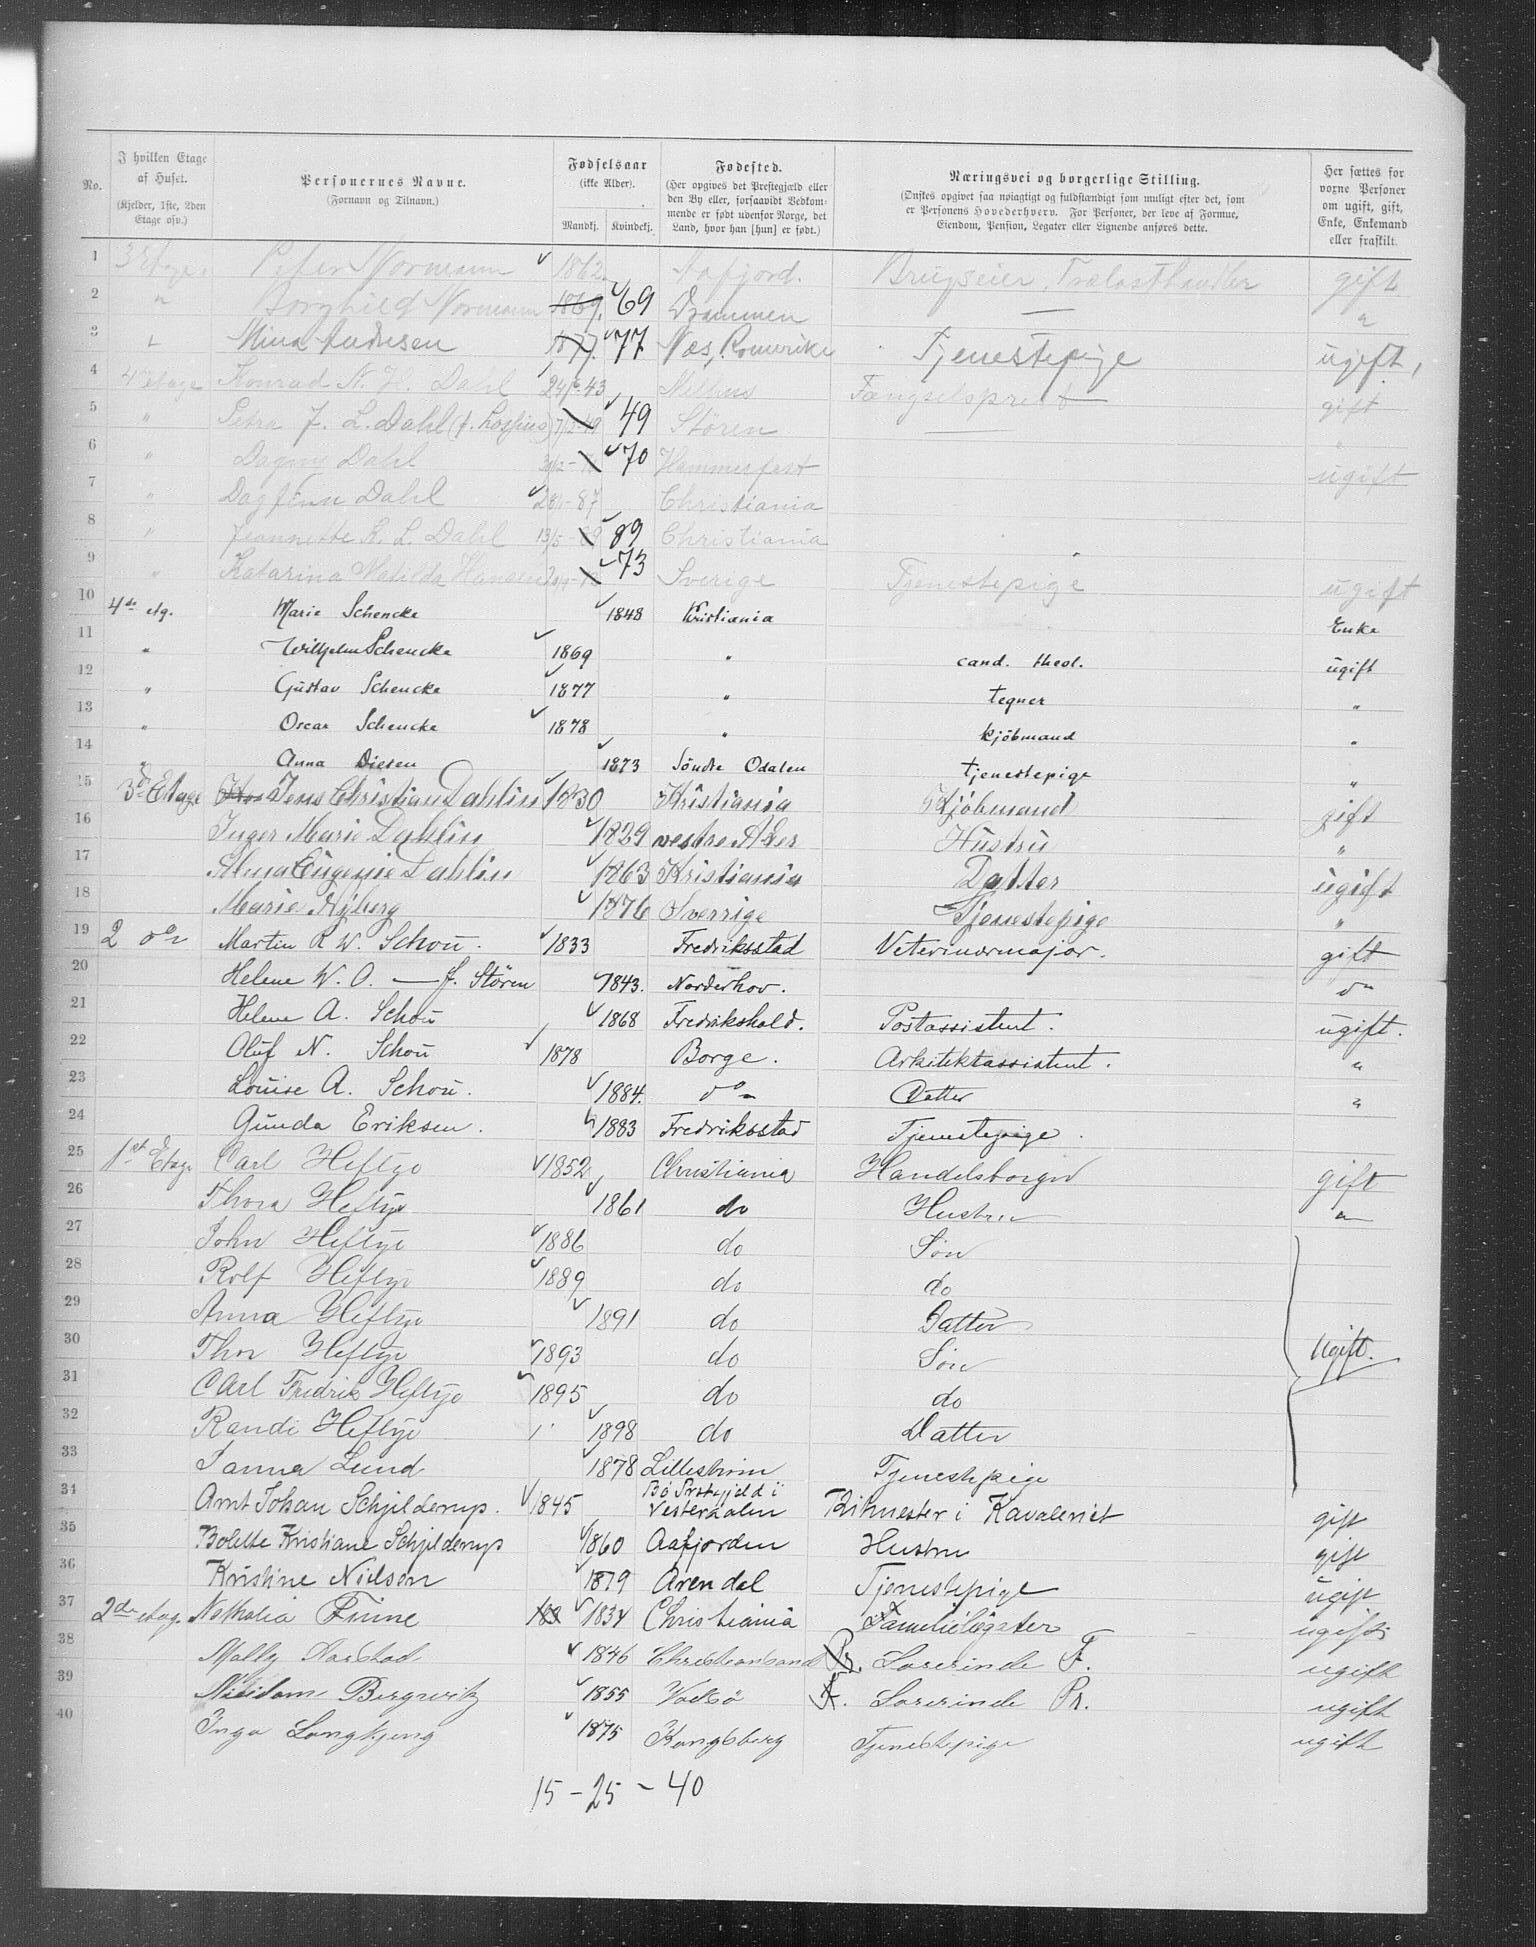 No.
I hvilken Etage af Huset. (Kjelder, 1ste, 2den Etage osv.)
Personernes Navne. (Fornavn og Tilnavn.)
Fødselsaar (ikke Alder). Mandkj. Kvindekj.
Fødested. (Her opgives det Prestegjæld eller den By eller, forsaavidt Vedkommende er født udenfor Norge, det Land, hvor han [hun] er født.)
Næringsvei og borgerlige Stilling. (Ønskes opgivet saa nøiagtigt og fuldstændigt som muligt efter det, som er Personens Hovederhverv. For Personer, der leve af Formue, Eiendom, Pension, Legater eller Lignende anføres dette.)
Her sættes for voxne Personer om ugift, gift, Enke, Enkemand eller fraskilt.
1 3 Etage Peter Normann 1862 Aafjord. Brugseier, Trælasthandler gift
2 " Borghild Normann 1869. 69 Drammen — "
3 Mina Andresen 1877. 77 Næs, Romerike Tjenestepige ugift,
4 4de etage Konrad N. H. Dahl 24/6-43 Melhus Fængselsprest gift
5 " Petra J. L. Dahl 49 Støren "
6 " Dagny Dahl 70 Hammerfest ugift
7 " Dagfinn Dahl -87 Christiania
8 " Jeannette K. L. Dahl 13/5 89 Christiania
9 " Katarina Matilda Hansen 73 Sverige Tjenestepige ugift
10 4de etg. Marie Schencke 1848 Kristiania Enke
11 " Wilhelm Schencke 1869 " cand. theol. ugift
12 " Gustav Schencke 1877 " tegner "
13 " Oscar Schencke 1878 " kjöbmand "
14 " Anna Diesen 1873 Söndre Odalen tjenestepige "
15 3de Etage Jens Christian Dahlin 1830 Kristiania Kjöbmand gift
16 Inger Marie Dahlin 1829 vestre Aker Hustru "
17 Alma Eugenie Dahlin 1863 Kristiania Datter ugift
18 Marie Nyberg 1876 Sverrige Tjenestepige "
19 2 do Martin R W. Schou. 1833 Fredriksstad Veterinærmajor. gift
20 Helene W. O. — f. Stören 1843. Norderhov. do
21 Helene A. Schou 1868 Fredrikshald. Postassistent. ugift.
22 Oluf N. Schou 1878 Borge. Arkitektassistent. "
23 Louise A. Schou. 1884. do Datter "
24 Gunda Eriksen. 1883 Fredriksstad Tjenestepige.
25 1ste Etage Carl Heftye 1852 Christiania Handelsborger gift
26 Thora Heftye 1861 do Hustru "
27 John Heftye 1886 do Søn
28 Rolf Heftye 1889 do do
29 Anna Heftye 1891 do Datter
30 Thor Heftye 1893 do Søn Ugift.
31 Carl Fredrik Heftye 1895 do do
32 Randi Heftye 1898 do Datter
33 Janna Lund 1878 Lillestrøm Tjenestepige
34 Arnt Johan Schjelderup. 1845 Bö Prstegjeld i Vesteraalen Ritmester i Kavaleriet gift
35 Bolette Kristiane Schjelderup 1860 Aafjorden Hustru gift
36 Kristine Nielsen 1879 Arendal Tjenestepige ugift
37 2den etage Nathalia Finne 183 1834 Christiania Familielegater ugift
38 Mally Aarstad 1846 Christiansand Pr. Lærerinde F. ugift
39 Bergwitz 1855 Vadsö F. Lærerinde Pr. ugift
40 Inga Langkjeng 1875 Kongsberg Tjenestepige ugift
15 – 25 – 40